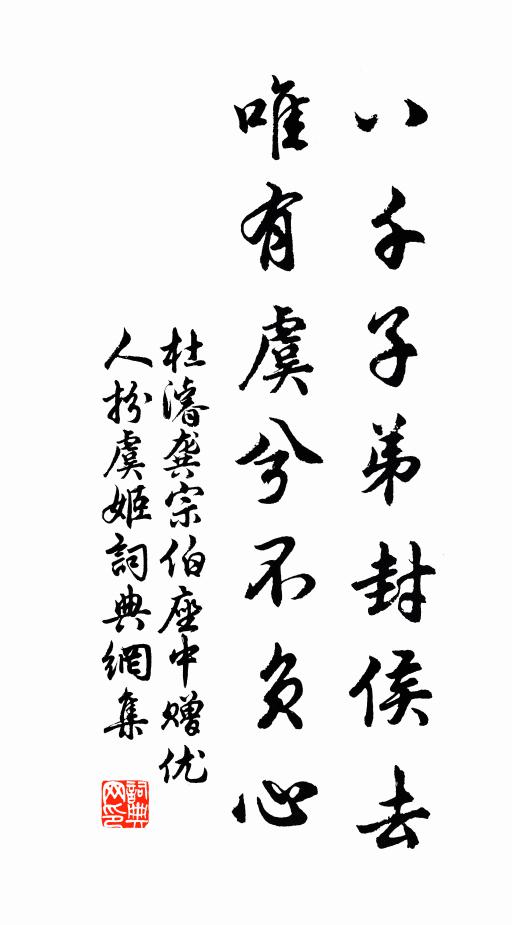 八千子弟封侯去
唯有虞兮不负心
杜濬龚宗伯座中赠优
人扮虞姬詞典網集
詞典网印